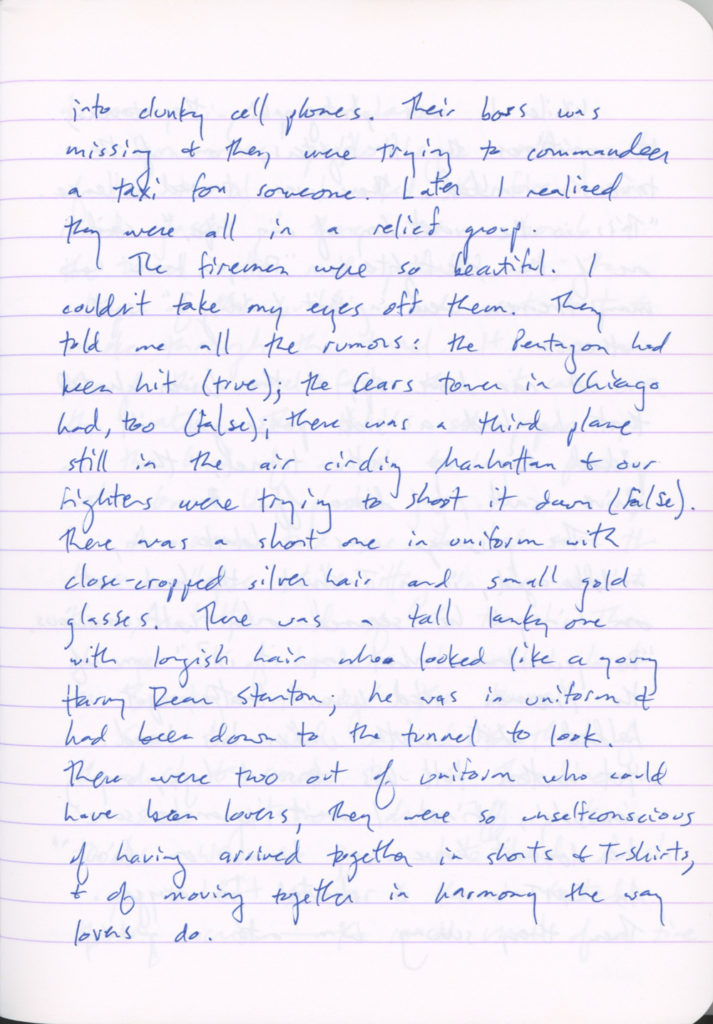 into clunky cell phones. Their boss was
missing & they were trying to commandeer
a taxi for someone. Later I realized
they were all in a relief group.
The firemen were so beautiful. I
couldn't take my eyes off them. They
told me all the rumors: the Pentagon had
been hit (true); the Sears tower in Chicago
had, too (false); there was a third plane
still in the air circling Manhattan & our
fighters were trying to shoot it down (false).
There was a short one in uniform with
close-cropped silver hair and small gold
glasses. There was a tall lanky one
with longish hair who looked like a young
Harry Dean Stanton; he was in uniform &
had been down to the tunnel to look.
There were two out of uniform who could
have been lovers, they were so unselfconscious
of having arrived together in shorts & T-shirts,
& of moving together in harmony the way
lovers do.